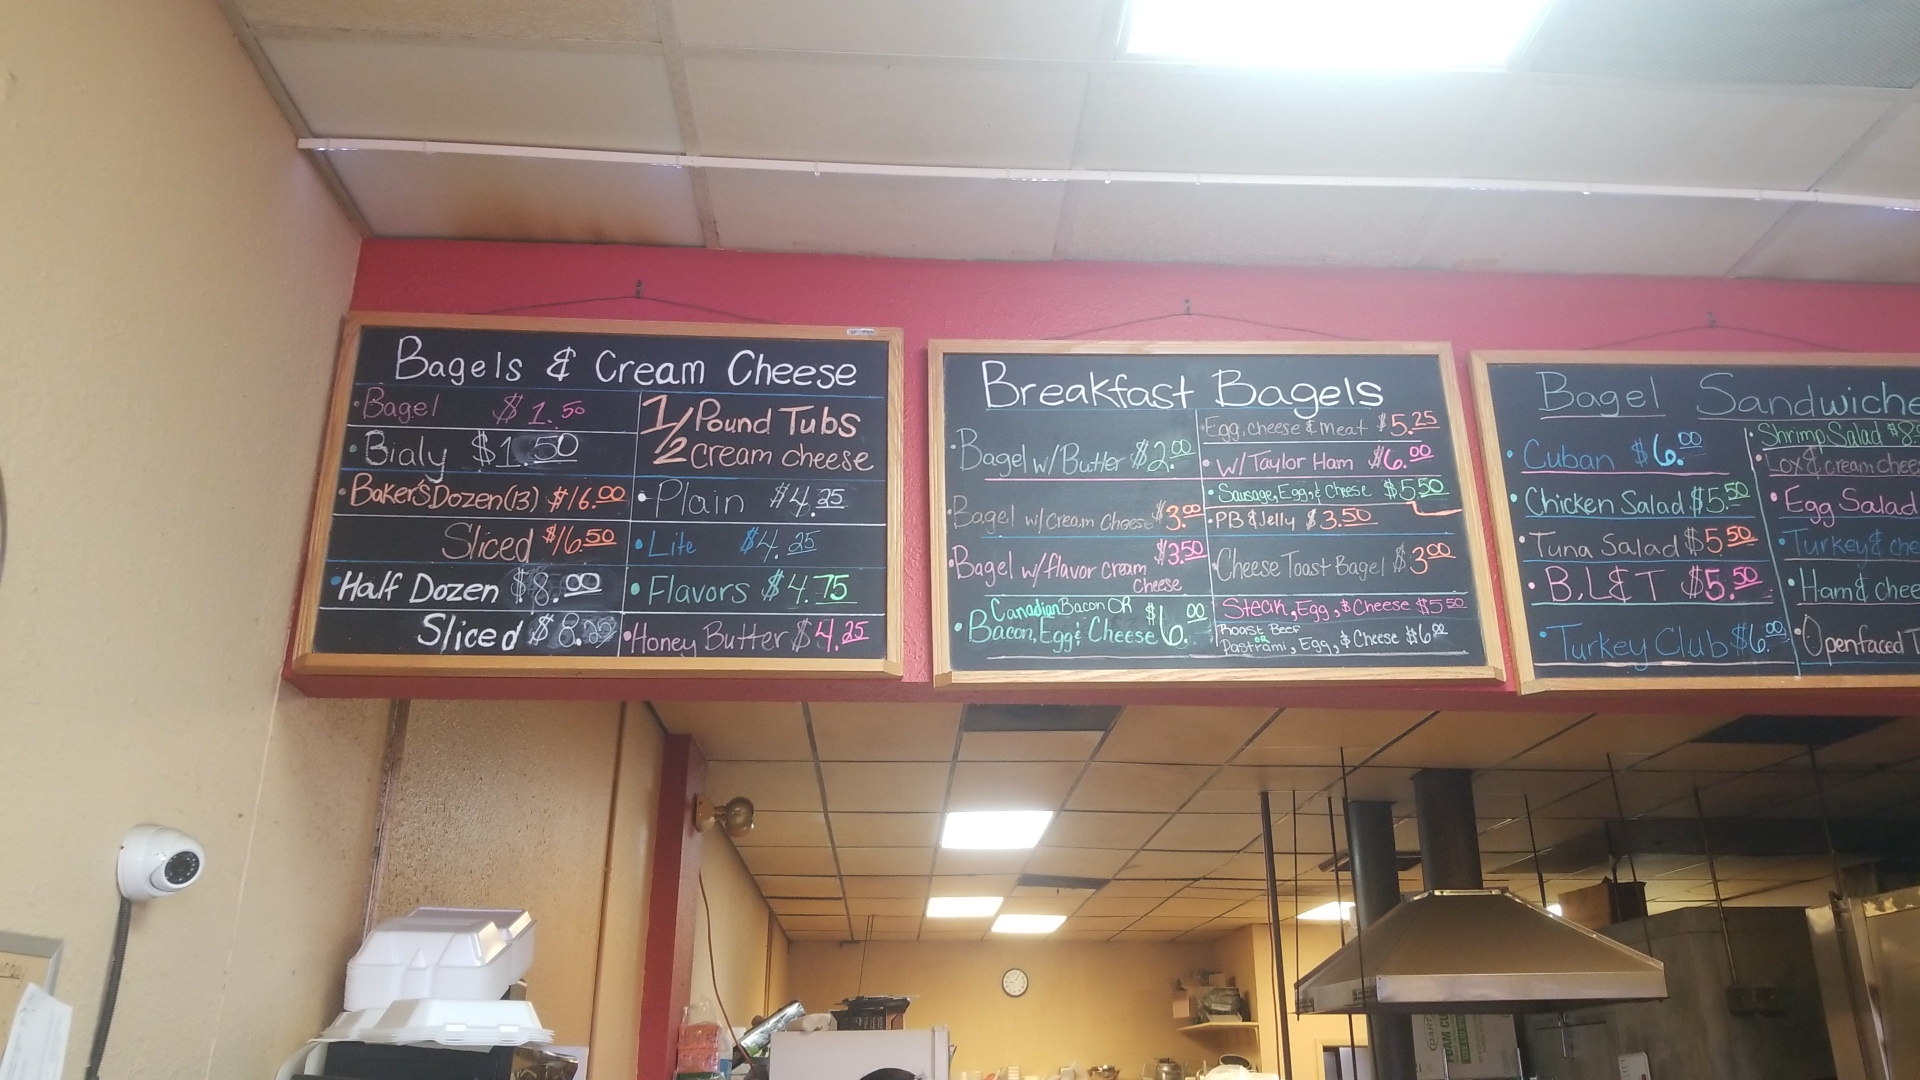 Bagels & Cream Cheese
• Bagel $1.50
• Bialy $1.50
• Baker's Dozen (13) $16.00
Sliced $16.50
• Half Dozen $8.00
Sliced $8.
1/2 Pound Tubs
Cream cheese
• Plain $4.25
• Lite $4.25
• Flavors $4.75
• Honey Butter $4.25
Breakfast Bagels
• Bagel w/Butter $2.00
• Bagel w/cream cheese $3.00
• Bagel w/flavor cream $3.50
Cheese
Canadian Bacon OR
• Bacon, Egg & Cheese $6.00
• Egg, cheese & Meat $5.25
• W/Taylor Ham $6.00
• Sausage, Egg, & Cheese $5.50
• PB & Jelly $3.50
• Cheese Toast Bagel $3.00
Steak, Egg, & Cheese $5.50
Roast Beef
OR
Pastrami, Egg, & Cheese $6.00
Bagel Sandwiche
• Cuban $6.00
• Chicken Salad $5.50
• Tuna Salad $5.50
• B.L&T $5.50
• Turkey Club $6.00
• Shrimp Salad $8.
• Lox & cream chee
• Egg Salad
• Turkey & che
• Ham & chee
• Openfaced T